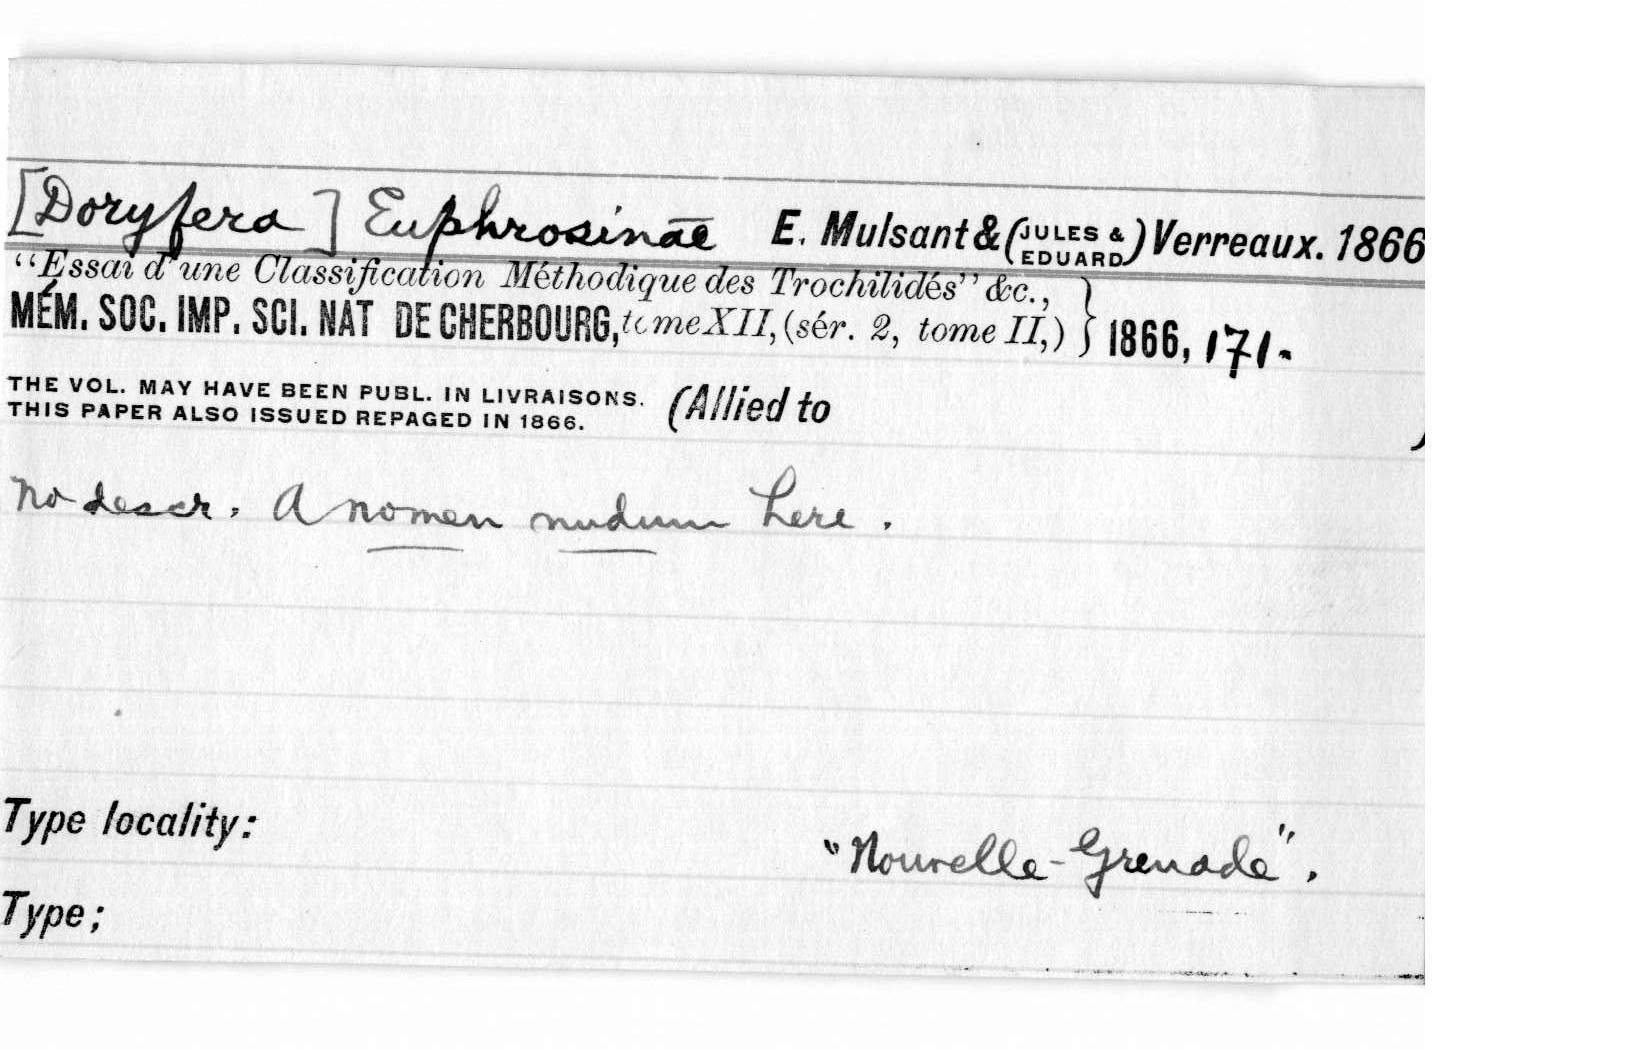 [Doryfera] Euphrosinae E. Mulsant & (JULES & EDUARD) Verreaux. 1866
"Essai d'une Classification Méthodique des Trochilidés" &c.,
MÉM. SOC. IMP. SCI. NAT DE CHERBOURG, tome XII, (sér. 2, tome II,) } 1866, 171.
THE VOL. MAY HAVE BEEN PUBL. IN LIVRAISONS.
THIS PAPER ALSO ISSUED REPAGED IN 1866. (Allied to )
No descr. A nomen nudum here.
Type locality: "Nouvelle-Grenade".
Type;